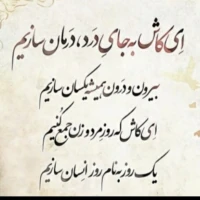 ای کاش به جایِ درد، درمان سازیم
بیرون و درون همیشه یکسان سازیم
ای کاش که روز مرد و زن جمع کُنیم
یک روز به نام روز انسان سازیم